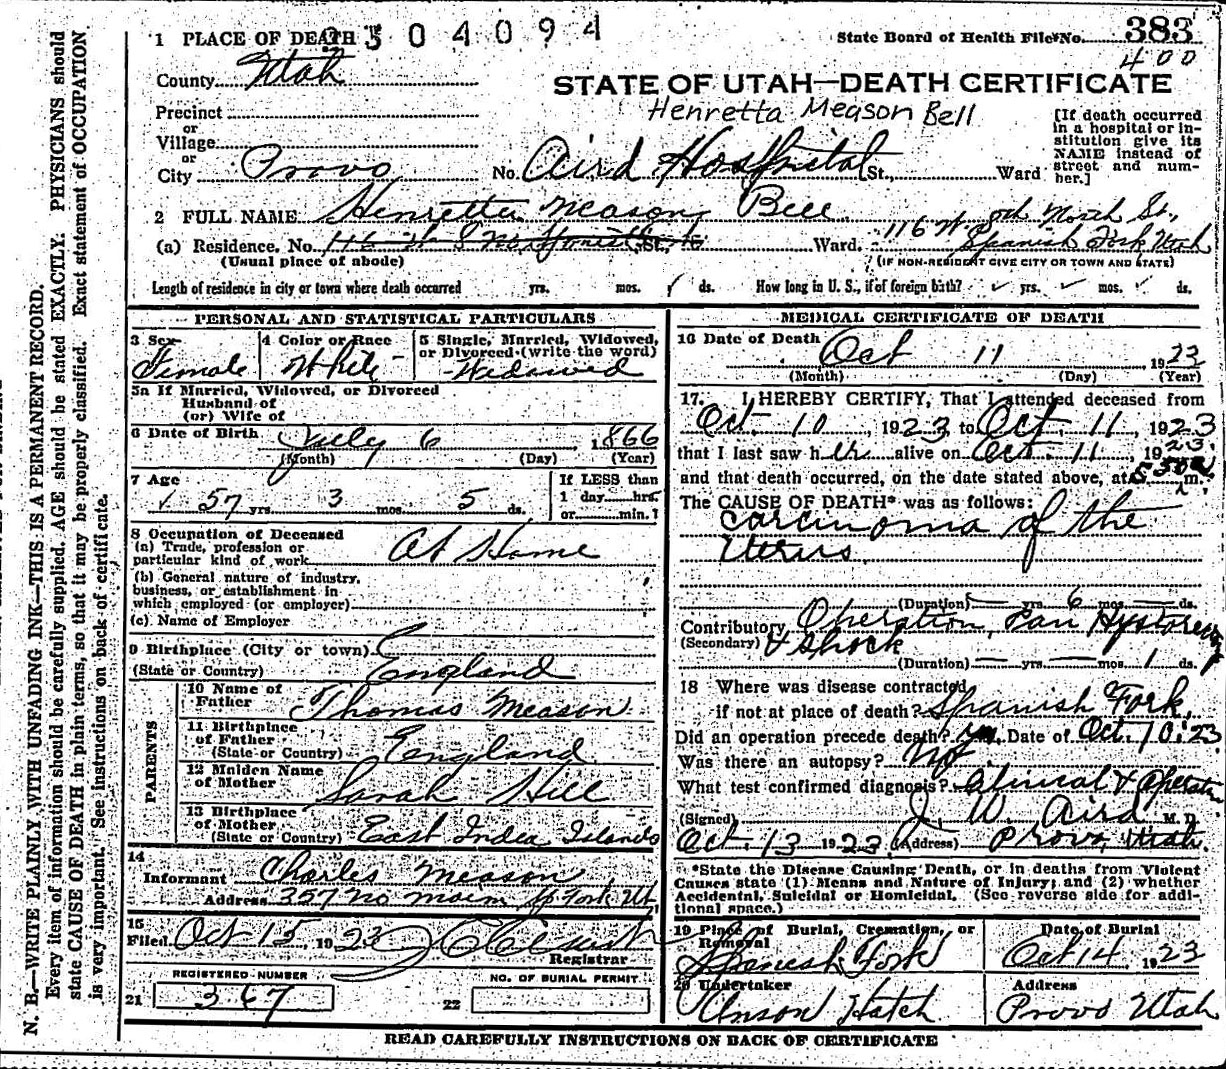 1 PLACE OF DEATH 2304094 State Board of Health File No. 383
400
County Utah
STATE OF UTAH—DEATH CERTIFICATE
Henretta Meason Bell
Precinct
or
Village
or
City Provo No. Aird Hospital St., Ward
[If death occurred
in a hospital or in-
stitution give its
NAME instead of
street and num-
ber.]
2 FULL NAME Henretta Meason Bell
(a) Residence. No. 116 St. Ward. 116 W 8th North St.,
Spanish Fork Utah
(Usual place of abode) (IF NON-RESIDENT GIVE CITY OR TOWN AND STATE)
Length of residence in city or town where death occurred yrs. mos. 1 ds. How long in U. S., if of foreign birth? yrs. mos. ds.
PERSONAL AND STATISTICAL PARTICULARS
3 Sex 4 Color or Race 5 Single, Married, Widowed,
or Divorced (write the word)
Female White Widowed
5a If Married, Widowed, or Divorced
Husband of
(or) Wife of
6 Date of Birth July 6 1866
(Month) (Day) (Year)
7 Age
57 yrs. 3 mos. 5 ds.
If LESS than
1 day hrs.
or min.?
8 Occupation of Deceased
(a) Trade, profession or
particular kind of work At Home
(b) General nature of industry,
business, or establishment in
which employed (or employer)
(c) Name of Employer
9 Birthplace (City or town)
(State or Country) England
PARENTS
10 Name of
Father Thomas Meason
11 Birthplace
of Father
(State or Country) England
12 Maiden Name
of Mother Sarah Hill
13 Birthplace
of Mother
(State or Country) East India Islands
14
Informant Charles Meason
Address 357 No Main Sp Fork Ut.
15
Filed Oct 15 1923
Registrar
REGISTERED NUMBER NO. OF BURIAL PERMIT
21 367 22
MEDICAL CERTIFICATE OF DEATH
16 Date of Death Oct 11 1923
(Month) (Day) (Year)
17. I HEREBY CERTIFY, That I attended deceased from
Oct. 10, 1923 to Oct. 11, 1923
that I last saw her alive on Oct. 11, 1923.
and that death occurred, on the date stated above, at m.
The CAUSE OF DEATH* was as follows:
Carcinoma of the
Uterus
(Duration) yrs. 6 mos. ds.
Contributory Operation, Pan Hysterec
(Secondary) & Shock
(Duration) yrs. mos. 1 ds.
18 Where was disease contracted
if not at place of death? Spanish Fork,
Did an operation precede death? yes. Date of Oct. 10. 23
Was there an autopsy? No
What test confirmed diagnosis? Clinical & Operatn
(Signed) J. W. Aird M. D.
Oct. 13 1923. (Address) Provo, Utah.
*State the Disease Causing Death, or in deaths from Violent
Causes state (1) Means and Nature of Injury; and (2) whether
Accidental, Suicidal or Homicidal. (See reverse side for addi-
tional space.)
19 Place of Burial, Cremation, or Date of Burial
Removal
Spanish Fork Oct 14 1923
20 Undertaker Address
Anson Hatch Provo Utah
READ CAREFULLY INSTRUCTIONS ON BACK OF CERTIFICATE
N. B.—WRITE PLAINLY WITH UNFADING INK—THIS IS A PERMANENT RECORD.
Every item of information should be carefully supplied. AGE should be stated EXACTLY. PHYSICIANS should
state CAUSE OF DEATH in plain terms, so that it may be properly classified. Exact statement of OCCUPATION
is very important. See instructions on back of certificate.